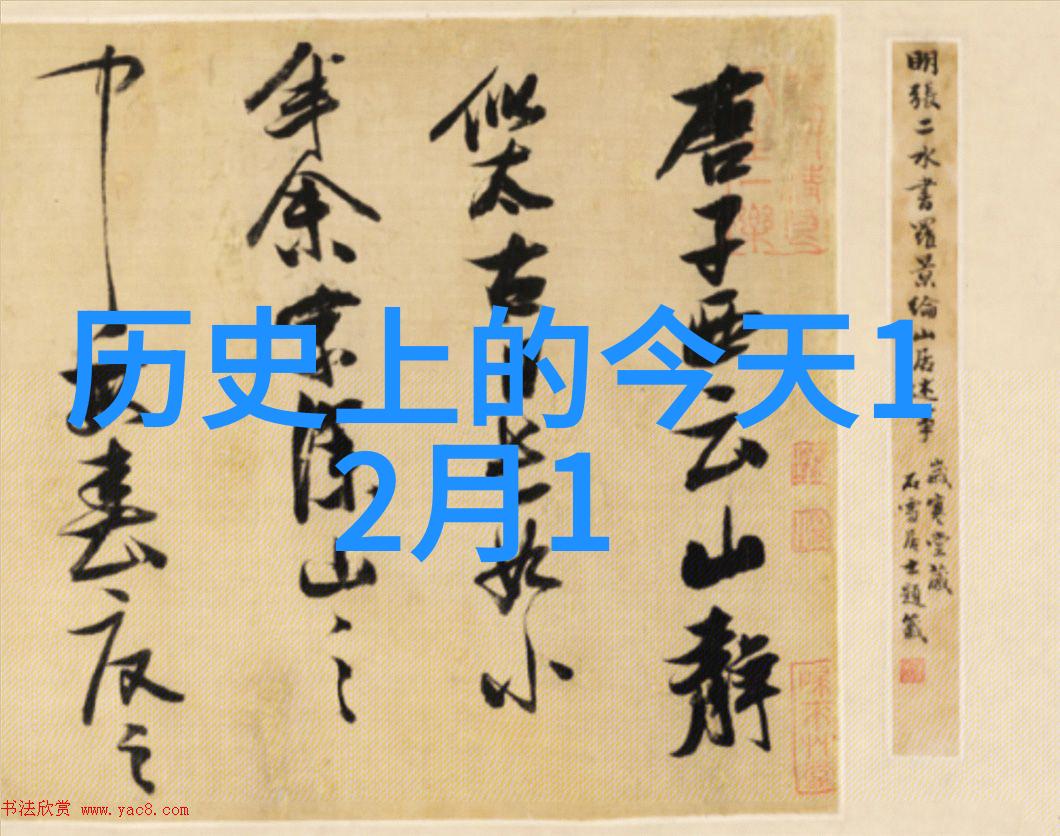 历史上的今天1
2月1
明張二水書羅景綸山居述事
歲寒堂藏
石雪居士題籤
唐子西云山靜
似太古日長如小
年余家深山之
中每春夏之
书法欣赏 www.yac8.com